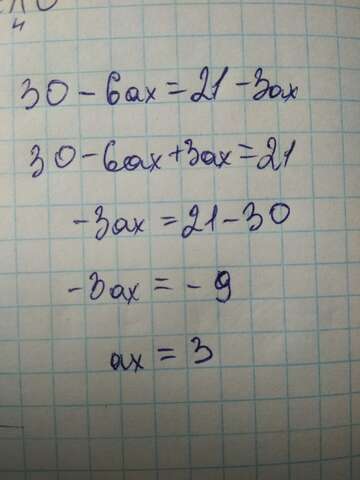 30 - 6ax = 21 - 3ax
30 - 6ax + 3ax = 21
-3ax = 21 - 30
-3ax = -9
ax = 3